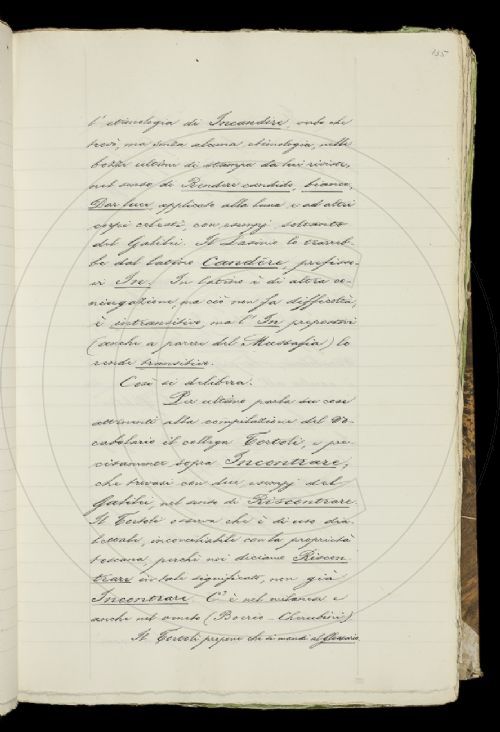 135
l'etimologia di Incandire, verbo che
trovò, ma senza alcuna etimologia, nelle
bozze ultime di stampa da lui riviste,
nel senso di Rendere candido, bianco,
Dar luce, applicato alla luna e ad altri
corpi celesti, con esempj soltanto
del Galilei. Il Lasinio lo trarreb-
be dal latino Candēre, prefisso-
vi In. In latino è di altra co-
niugazione, ma ciò non fa difficoltà,
è intransitivo, ma l'In prepostovi
(anche a parere del Mussafia) lo
rende transitivo.
Così si delibera.
Per ultimo parla su cose
attenenti alla compilazione del Vo-
cabolario il collega Tortoli, e pre-
cisamente sopra Incontrare,
che trovasi con due esempj del
Galilei, nel senso di Riscontrare.
Il Tortoli osserva che è di uso dia-
lettale, inconciliabile con la proprietà
toscana, perchè noi diciamo Riscon-
trare in tale significato, non già
Incontrare. C'è nel milanese e
anche nel veneto (Boerio - Cherubini)
Il Tortoli propone che si mandi al Glossario